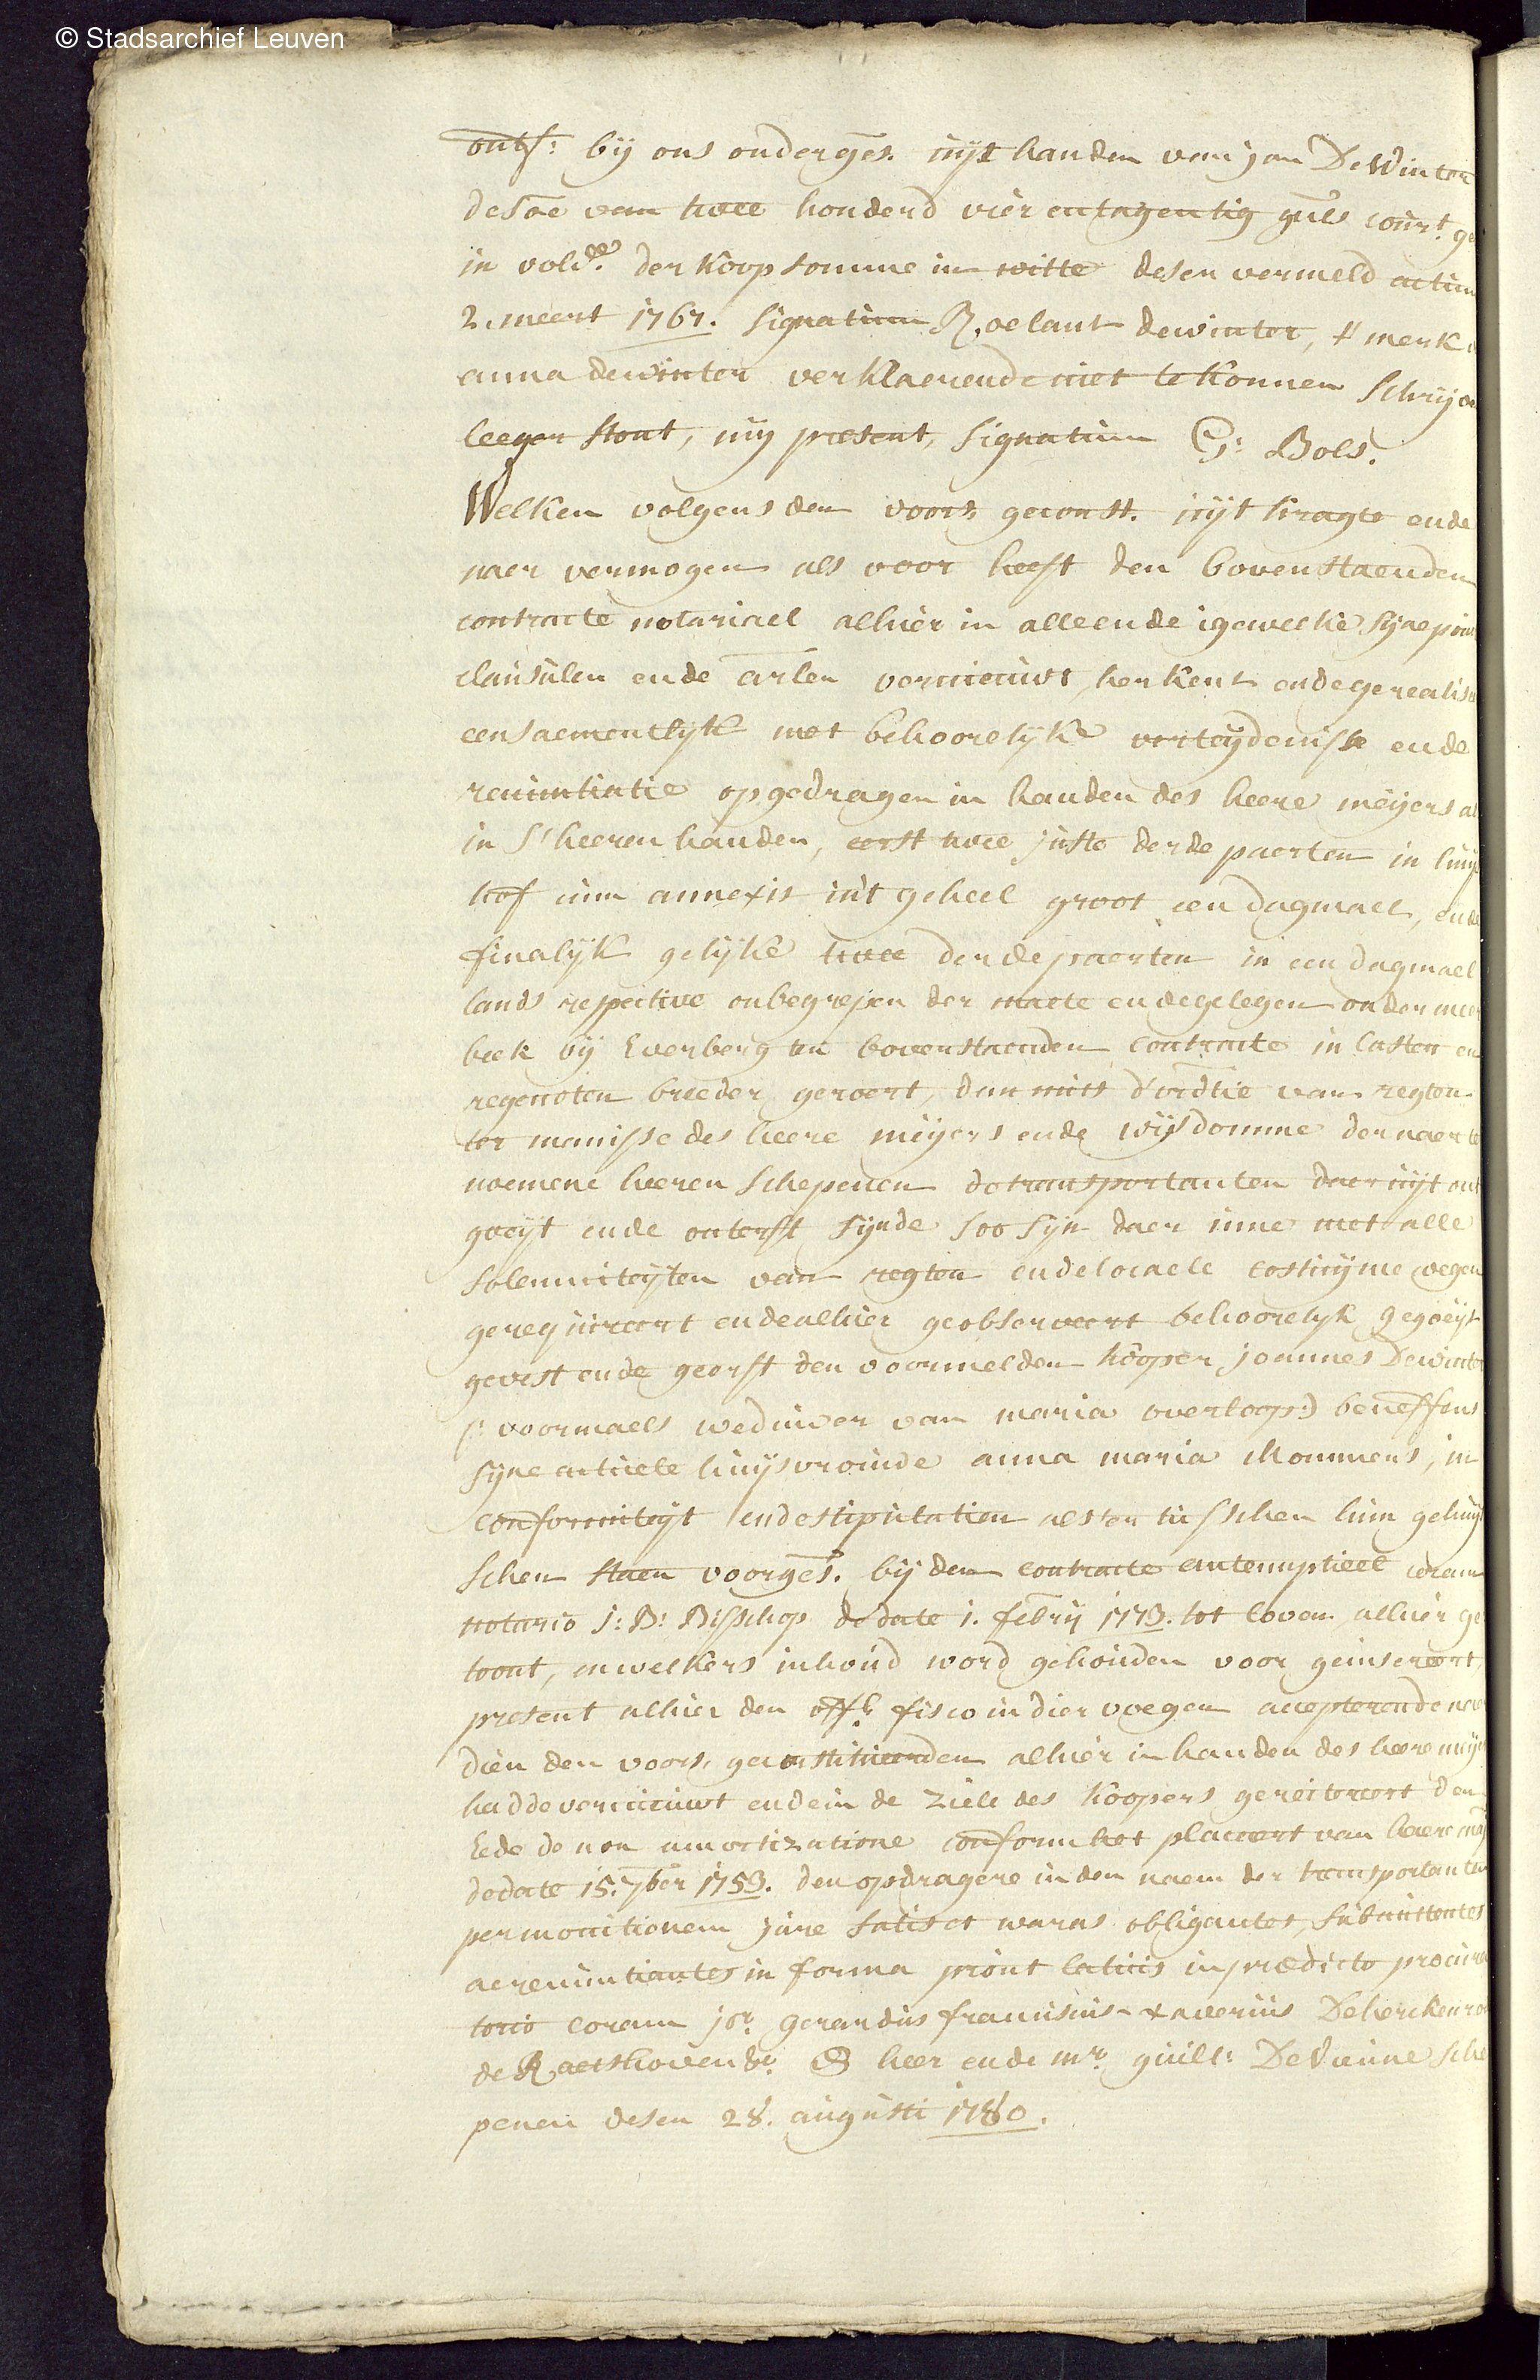 © Stadsarchief Leuven
ontf: bij ons onderges. uijt handen van jan De Winter
de soe van twee honderd vier entagentig guls cour.t ge
in vold.e der koopsomme in witte desen vermeld actum
2. meert 1767. signatum Roelant dewinter, + merk
anna dewinter verklaerende niet te konnen schrijv
leeger stont, mij present, signatum G: Bols.
Welken volgens den voors. geconst. uijt kragte ende
naer vermogen als voor heeft den bovenstaenden
contracte notariael alhier in alle ende igewelke sijne poin
clausulen ende arlen vernieuwt, herkent ende gerealis
eensaementlijk met behoorelijke verteijdenisse ende
renuntiatie opgedragen in handen des heere meijers al
in s'heeren handen, eerst twee juste derde paerten in huijs
hof cum annexis int geheel groot een dagmael, ende
finalijk gelijke twee derde paerten in een dagmael
lands respective onbegrepen der maete ende gelegen onder meer
beek bij Everberg ten bovenstaenden contracte in lasten en
regenoten breeder geroert, dan mits d'ordtie van regten
ter manisse des heere meijers ende wijsdomme der naer te
noemene heeren schepenen de transportanten daer uijt ont
goeijt ende onterft sijnde soo sijn daer inne met alle
solemniteijten van regten ende locaele costuijme wegen
gerequireert ende alhier geobserveert behoorelijk gegoeijt
gevest ende geerft den voormelden kooper joannes Dewinter
(: voormaels weduwer van maria overloop:) beneffens
sijne actuele huijsvrouwe anna maria Mommens, in
conformiteijt ende stipulatien als ten tusschen hun gehuij
schen staen voorges. bij den contracte antenuptieel coram
notario J: B: Bisschop de date 1. febrij 1773. tot loven alhier ge
toont, en welkers inhoud word gehouden voor geinsereert,
present alhier den off.r fisco in dier voegen accepterende naer
dien den voors. geconstitueerden alhier in handen des heere meij
hadde vernieuwt ende in de ziele des koopers gereitereert den
Eede de non amortizatione conform het placcaert van haere maj
de date 15. 7ber 1753. den opdragere in den naem der transportanten
per monitionem jure satis et waras obligantes, submittentes
ac renuntiantes in forma prout latius in praedicto procura
torio coram jor. gerardus franciscus xaverius Deherckenro
de Raetshoven &c. & heer ende mr. guill: De Vienne sche
penen desen 28. augusti 1780.